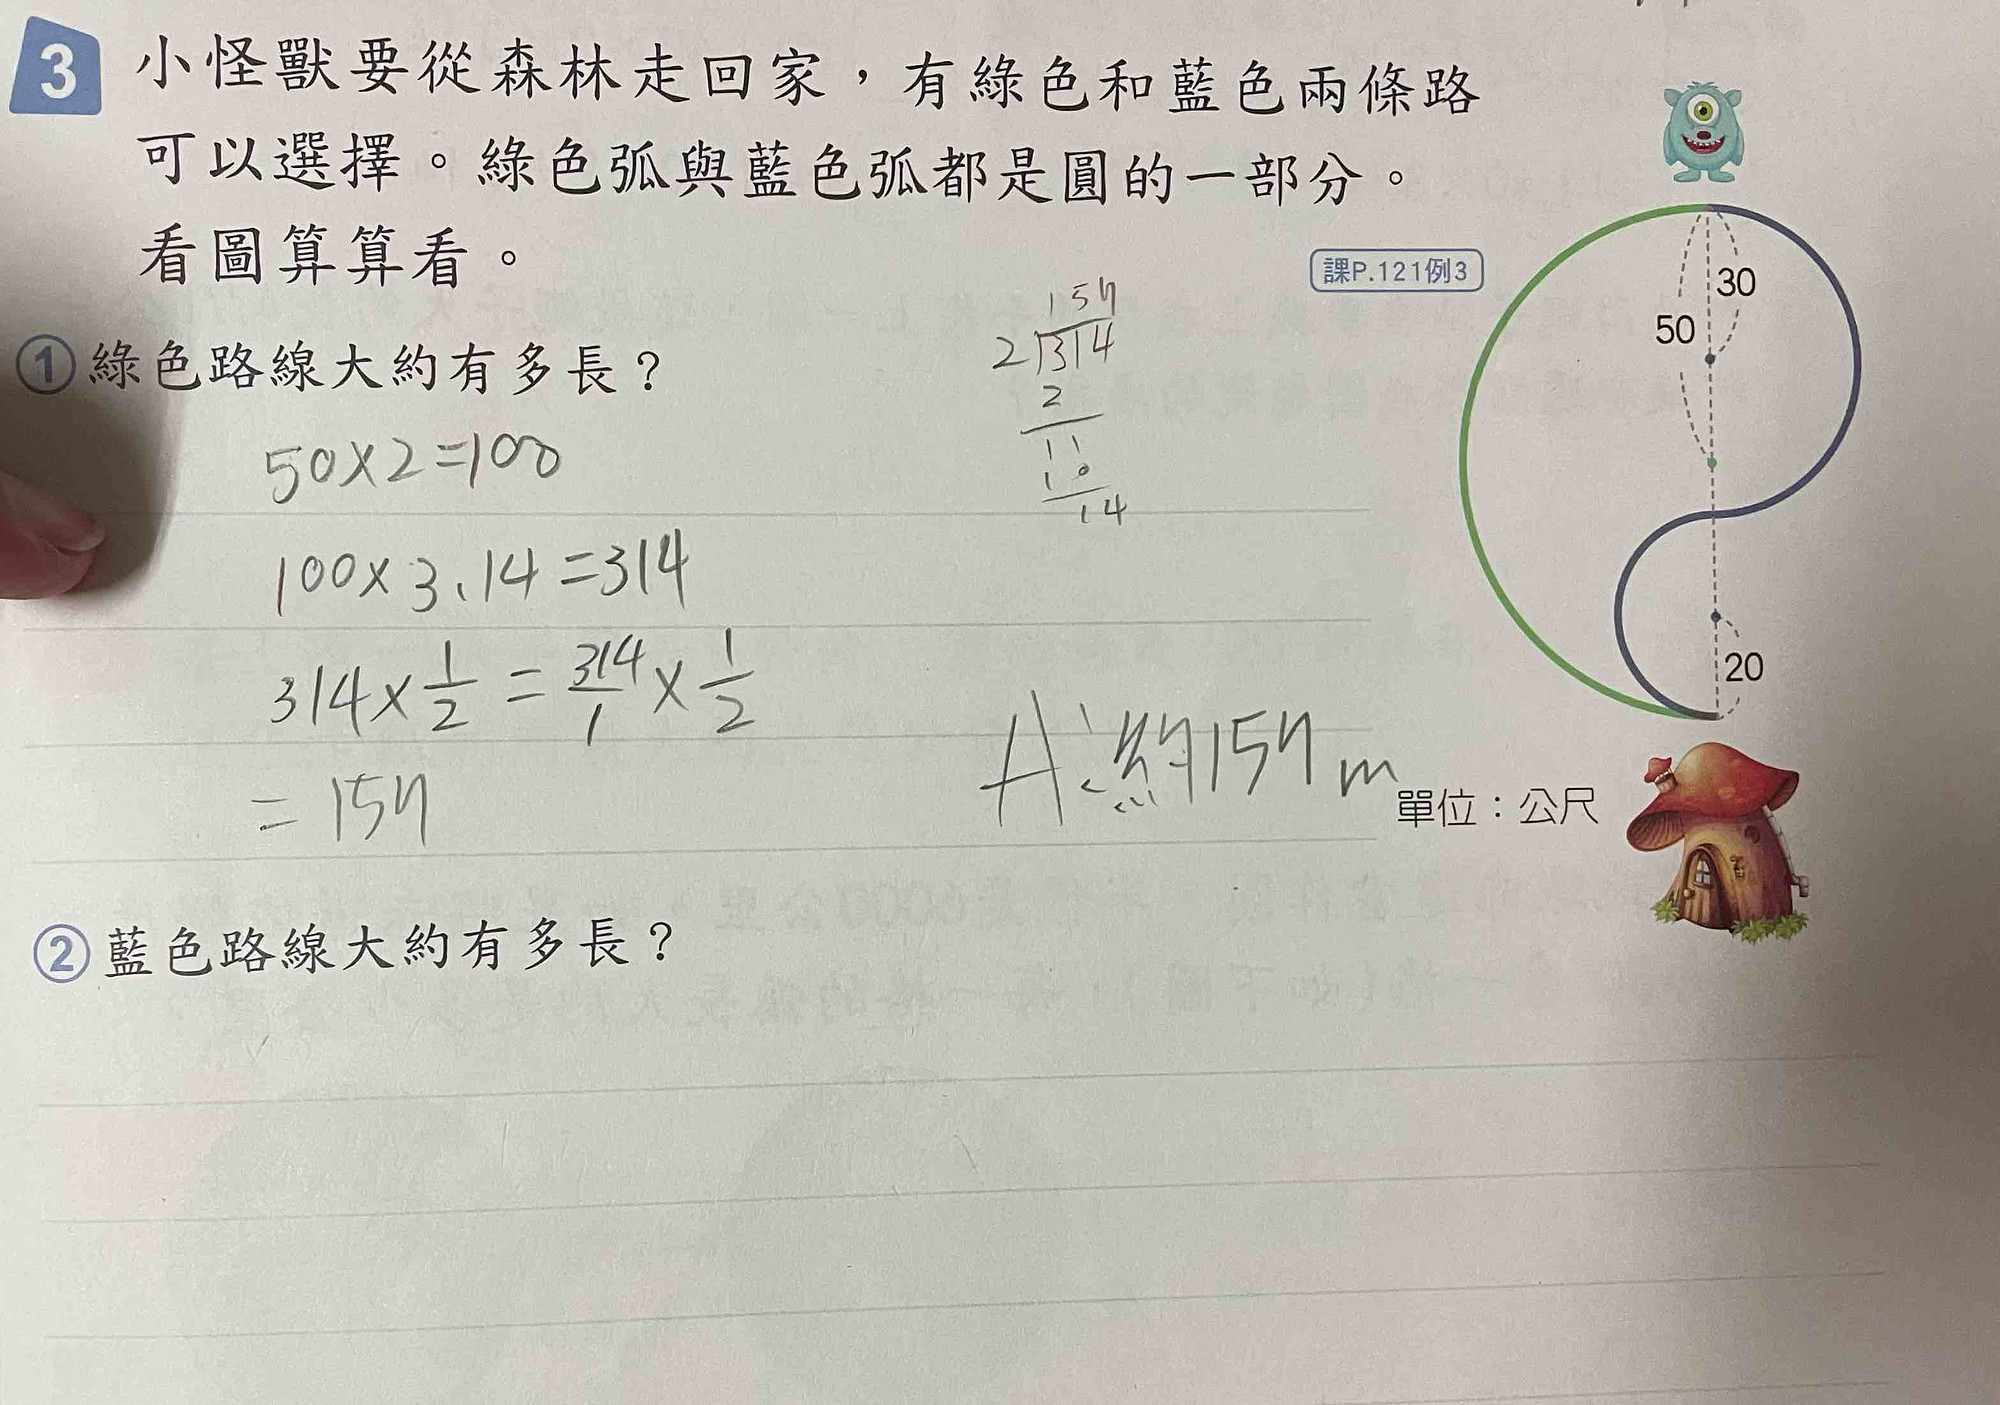 3 小怪獸要從森林走回家，有綠色和藍色兩條路
可以選擇。綠色弧與藍色弧都是圓的一部分。
看圖算算看。
課P.121例3
30
50
20
單位：公尺
①綠色路線大約有多長？
50×2=100
100×3.14=314
314×1/2=314/1×1/2
=157
157
2)314
2
11
10
14
A:約157m
②藍色路線大約有多長？